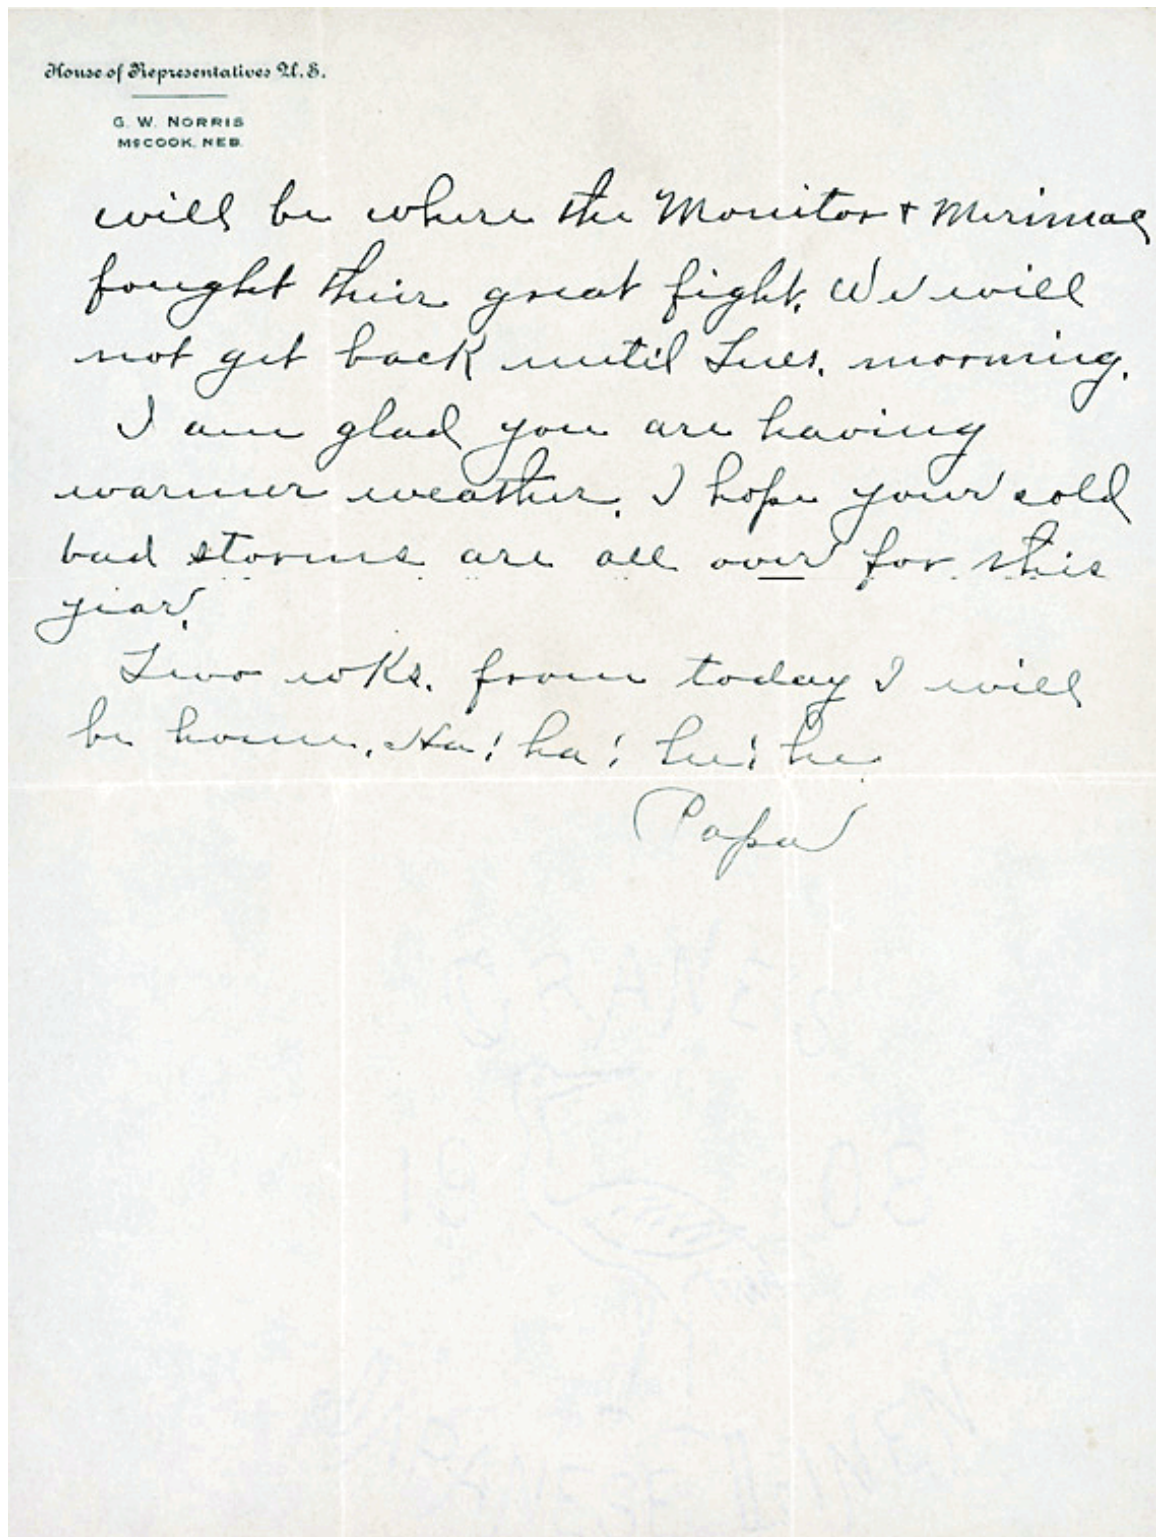 House of Representatives U.S.
G. W. NORRIS
McCOOK, NEB.
will be where the Monitor + Merimac
fought their great fight. We will
not get back until Tues. morning.
I am glad you are having
warmer weather. I hope your cold
bad storms are all over for this
year.
Two wks. from today I will
be home. Ha! ha! he! he
Papa